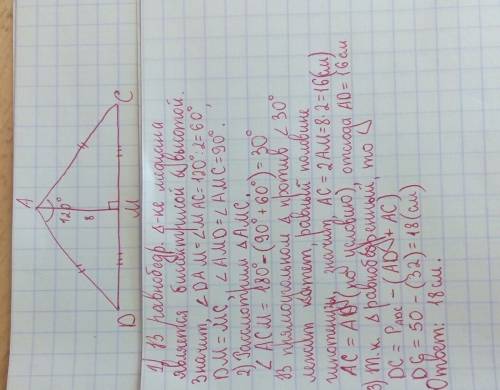 A
120°
8
D
M
C
1) В равнобедр. Δ-ке медиана
является биссектрисой и высотой.
Значит, ∠DAM = ∠MAC = 120° : 2 = 60°
DM = MC, ∠AMD = ∠AMC = 90°.
2) Рассмотрим ΔAMC.
∠ACM = 180° - (90° + 60°) = 30°
В прямоугольном Δ против ∠30°
лежит катет, равный половине
гипотенузы, значит, AC = 2AM = 8·2 = 16(см)
AC = AD (по условию), отсюда AD = 16 см
3) т.к. Δ равнобедренный, то
DC = PADC - (AD + AC)
DC = 50 - (32) = 18 (см)
Ответ: 18 см.